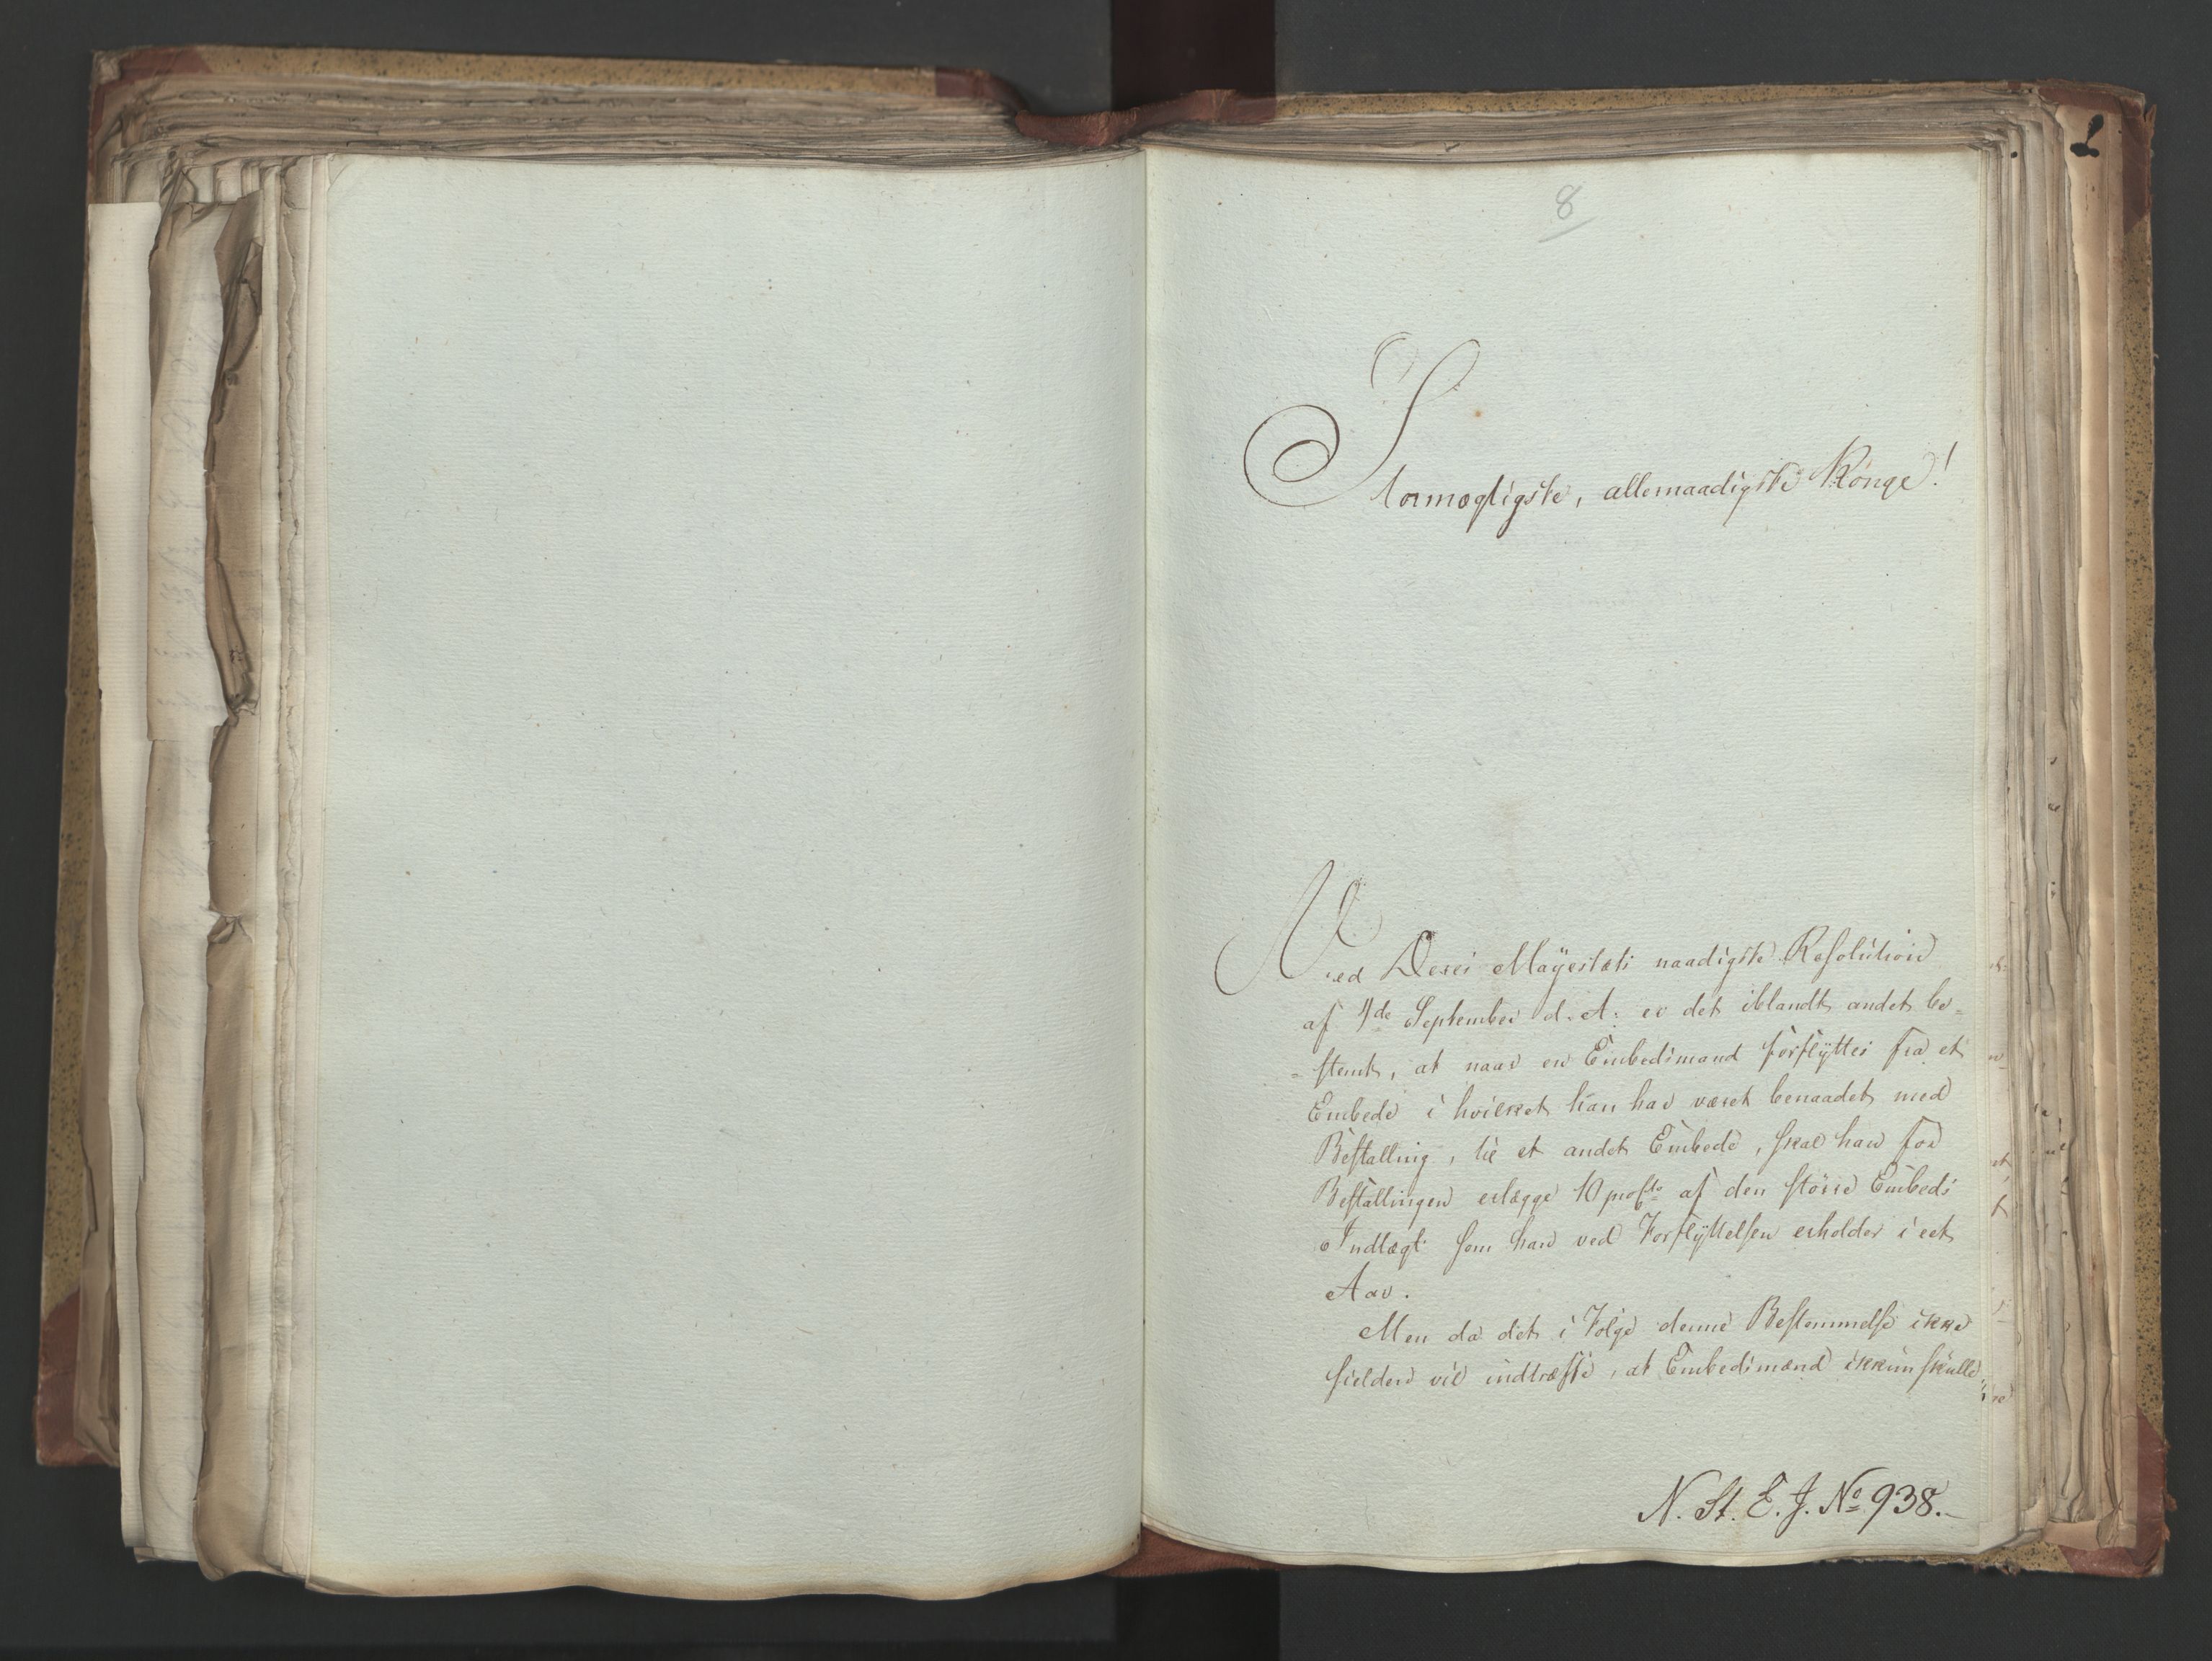 8
Stormægtigste, allernaadigste Konge!
Ved Deres Mayestæts naadigste Resolution
af 4de September d. A. er det iblandt andet be-
-stemt, at naar en Embedsmand forflyttes fra et
Embede i hvilket han har været benaadet med
Bestalling, til et andet Embede, skal han for
Bestallingen erlægge 10 procto af den større Embeds
Indtægt som han ved Forflyttelsen erholder i eet
Aar.
Men da det i Følge denne Bestemmelse ikke
sielden vil indtræffe, at Embedsmænd ikkun skulle
N. St. E. J. No 938.-